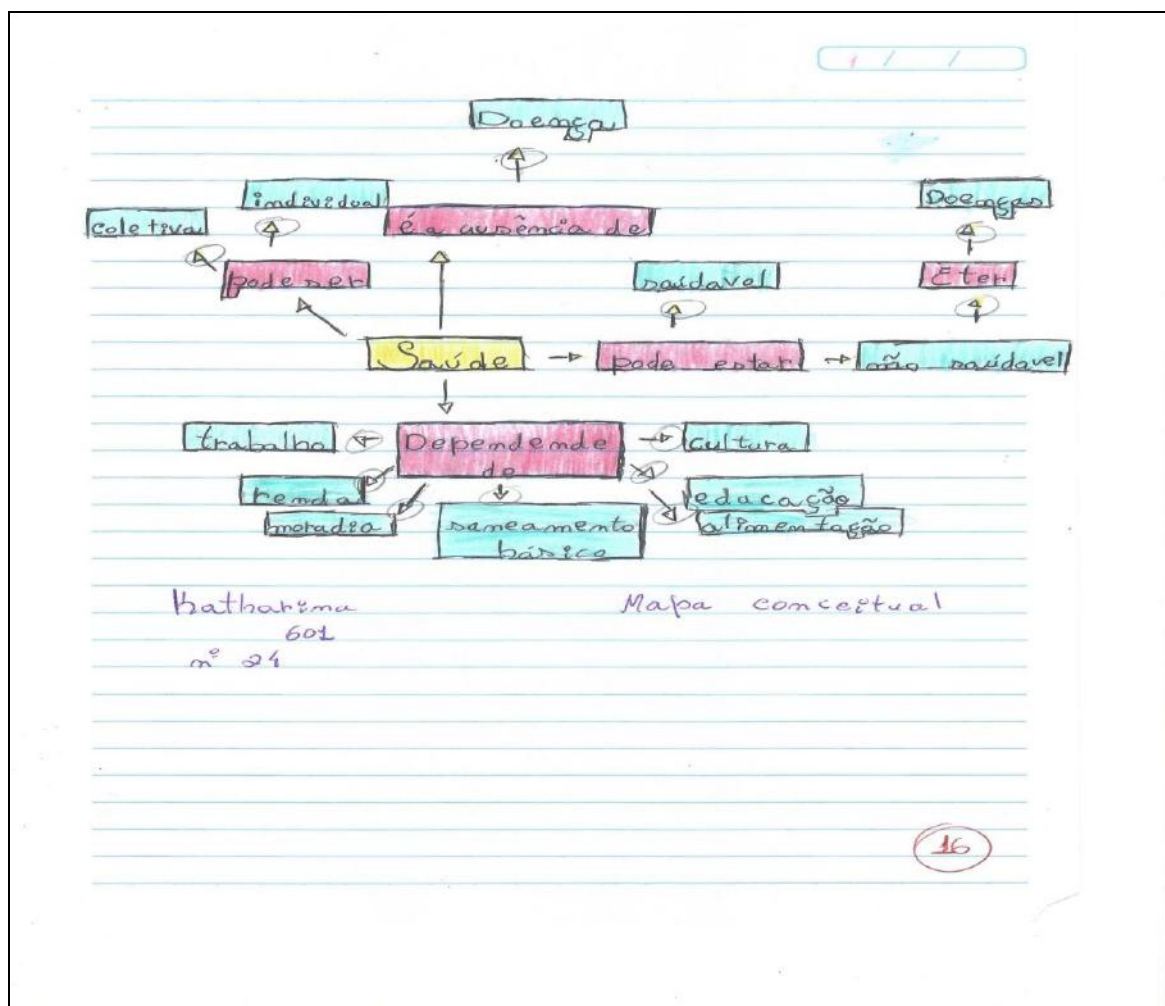 Doença
individual
Doenças
coletiva
é a ausência de
pode ser
saúdavel
É ter
Saúde
pode estar
não saúdavel
trabalho
Dependende
de
cultura
renda
educação
moradia
saneamento
básico
alimentação
Katharina
Mapa conceitual
601
nº 24
16